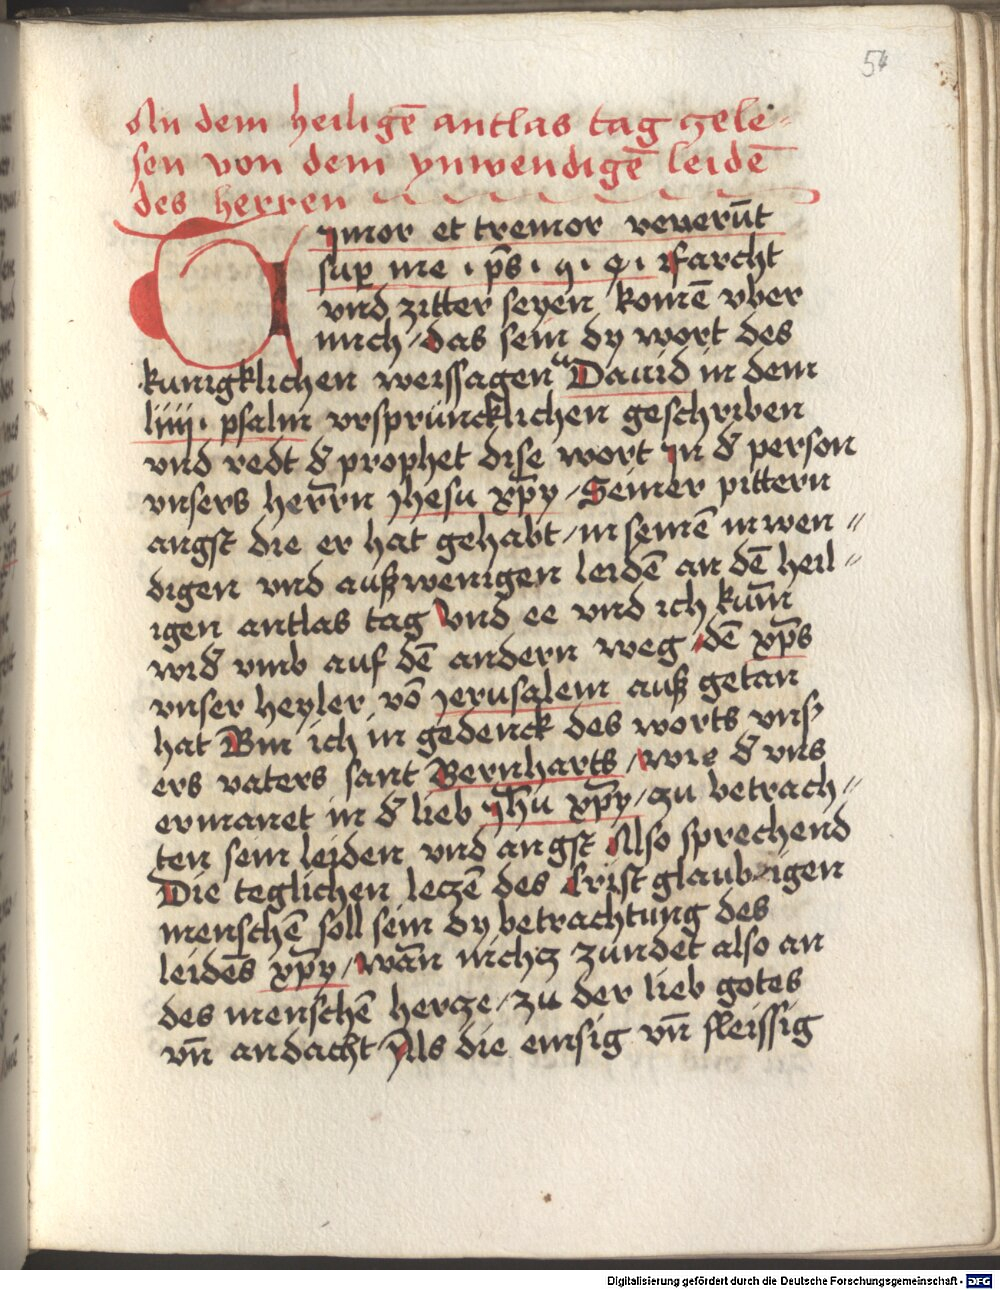 54
An dem heiligē antlas tag gele-
sen von dem ynwendigē leidē
des herren
Tymor et tremor venerūt
suꝑ me · ps̄ · Farcht
vnd zitter seyen komē vber
mich / das sein dy wort des
kunigklichen weissagen Dauid in dem
liiii · psalm vrsprüncklichen geschriben
vnd redt d̄ prophet dise wort In d̄ person
vnsers herrn Jhesu xp̄y / Seiner pittern
angst die er hat gehabt / in seinē inwen //
digen vnd außwenigen leidē an dē heil //
igen antlas tag Vnd ee vnd ich kum̄
wid̄ vmb auf dē andern weg / dē xp̄s
vnser heyler vō Jerusalem auß getan
hat Bin ich in gedenck des worts vns
ers vaters sant Bernharts / wie d̄ vns
ermanet in d̄ lieb Jh̄u xp̄y / zu betrach //
ten sein leiden vnd angst Also sprechend
Die teglichen leczē des Cristglaubigen
menschē soll sein dy betrachtung des
leidēs xp̄y / wan̄ nichcz zündet also an
des menschē hercze / zu der lieb gotes
vn̄ andacht / Als die emsig vn̄ fleissig
Digitalisierung gefördert durch die Deutsche Forschungsgemeinschaft - DFG